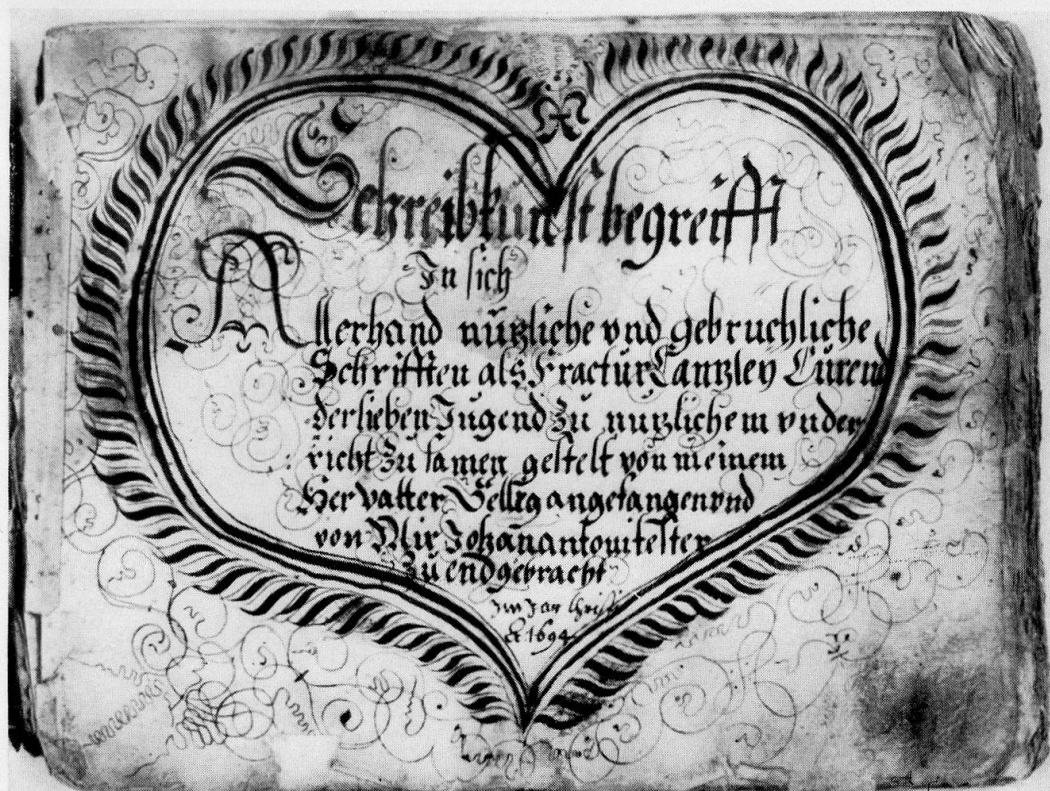 Schreibkunst begreifft
In sich
Allerhand nützliche vnd gebruchliche
Schrifften als Fractur Cantzley Current
der lieben Jugend zu nutzlichem vnder
richt zu samen gestelt von meinem
Her vatter Sellig angefangen vnd
von Mir Johan antoni
zu end gebracht
Im Jar Christi
1694